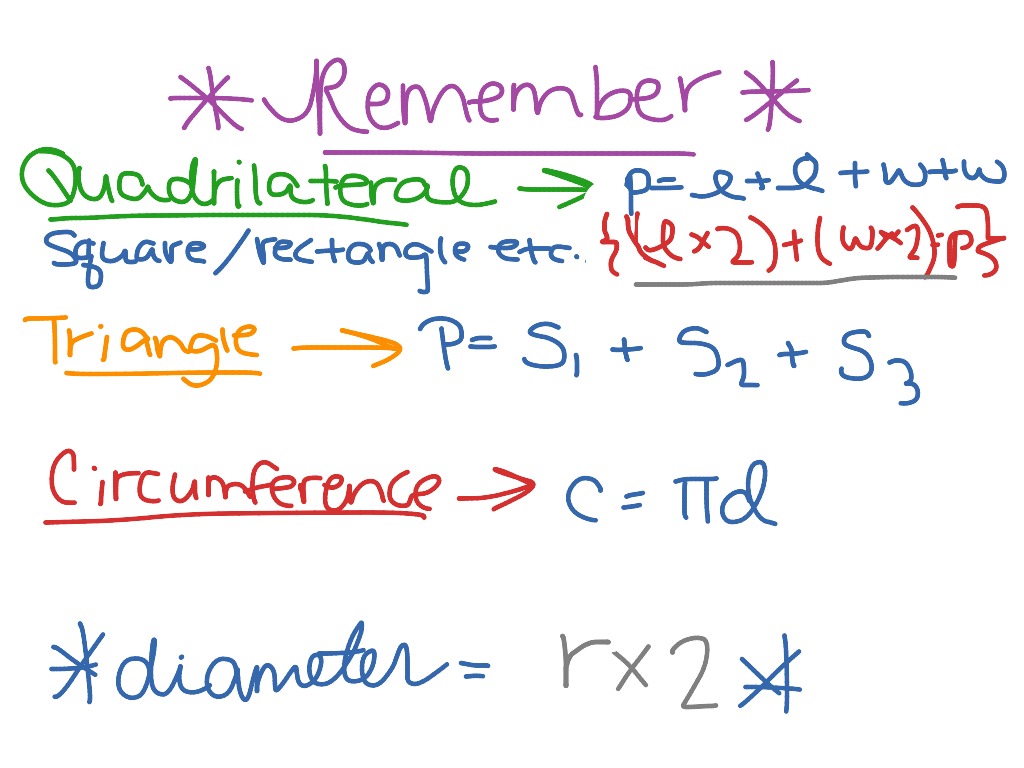 * Remember *
Quadrilateral → p = l + l + w + w
Square/rectangle etc. {(l × 2) + (w × 2) = p}
Triangle → P = S₁ + S₂ + S₃
Circumference → C = πd
* diameter = r × 2 *